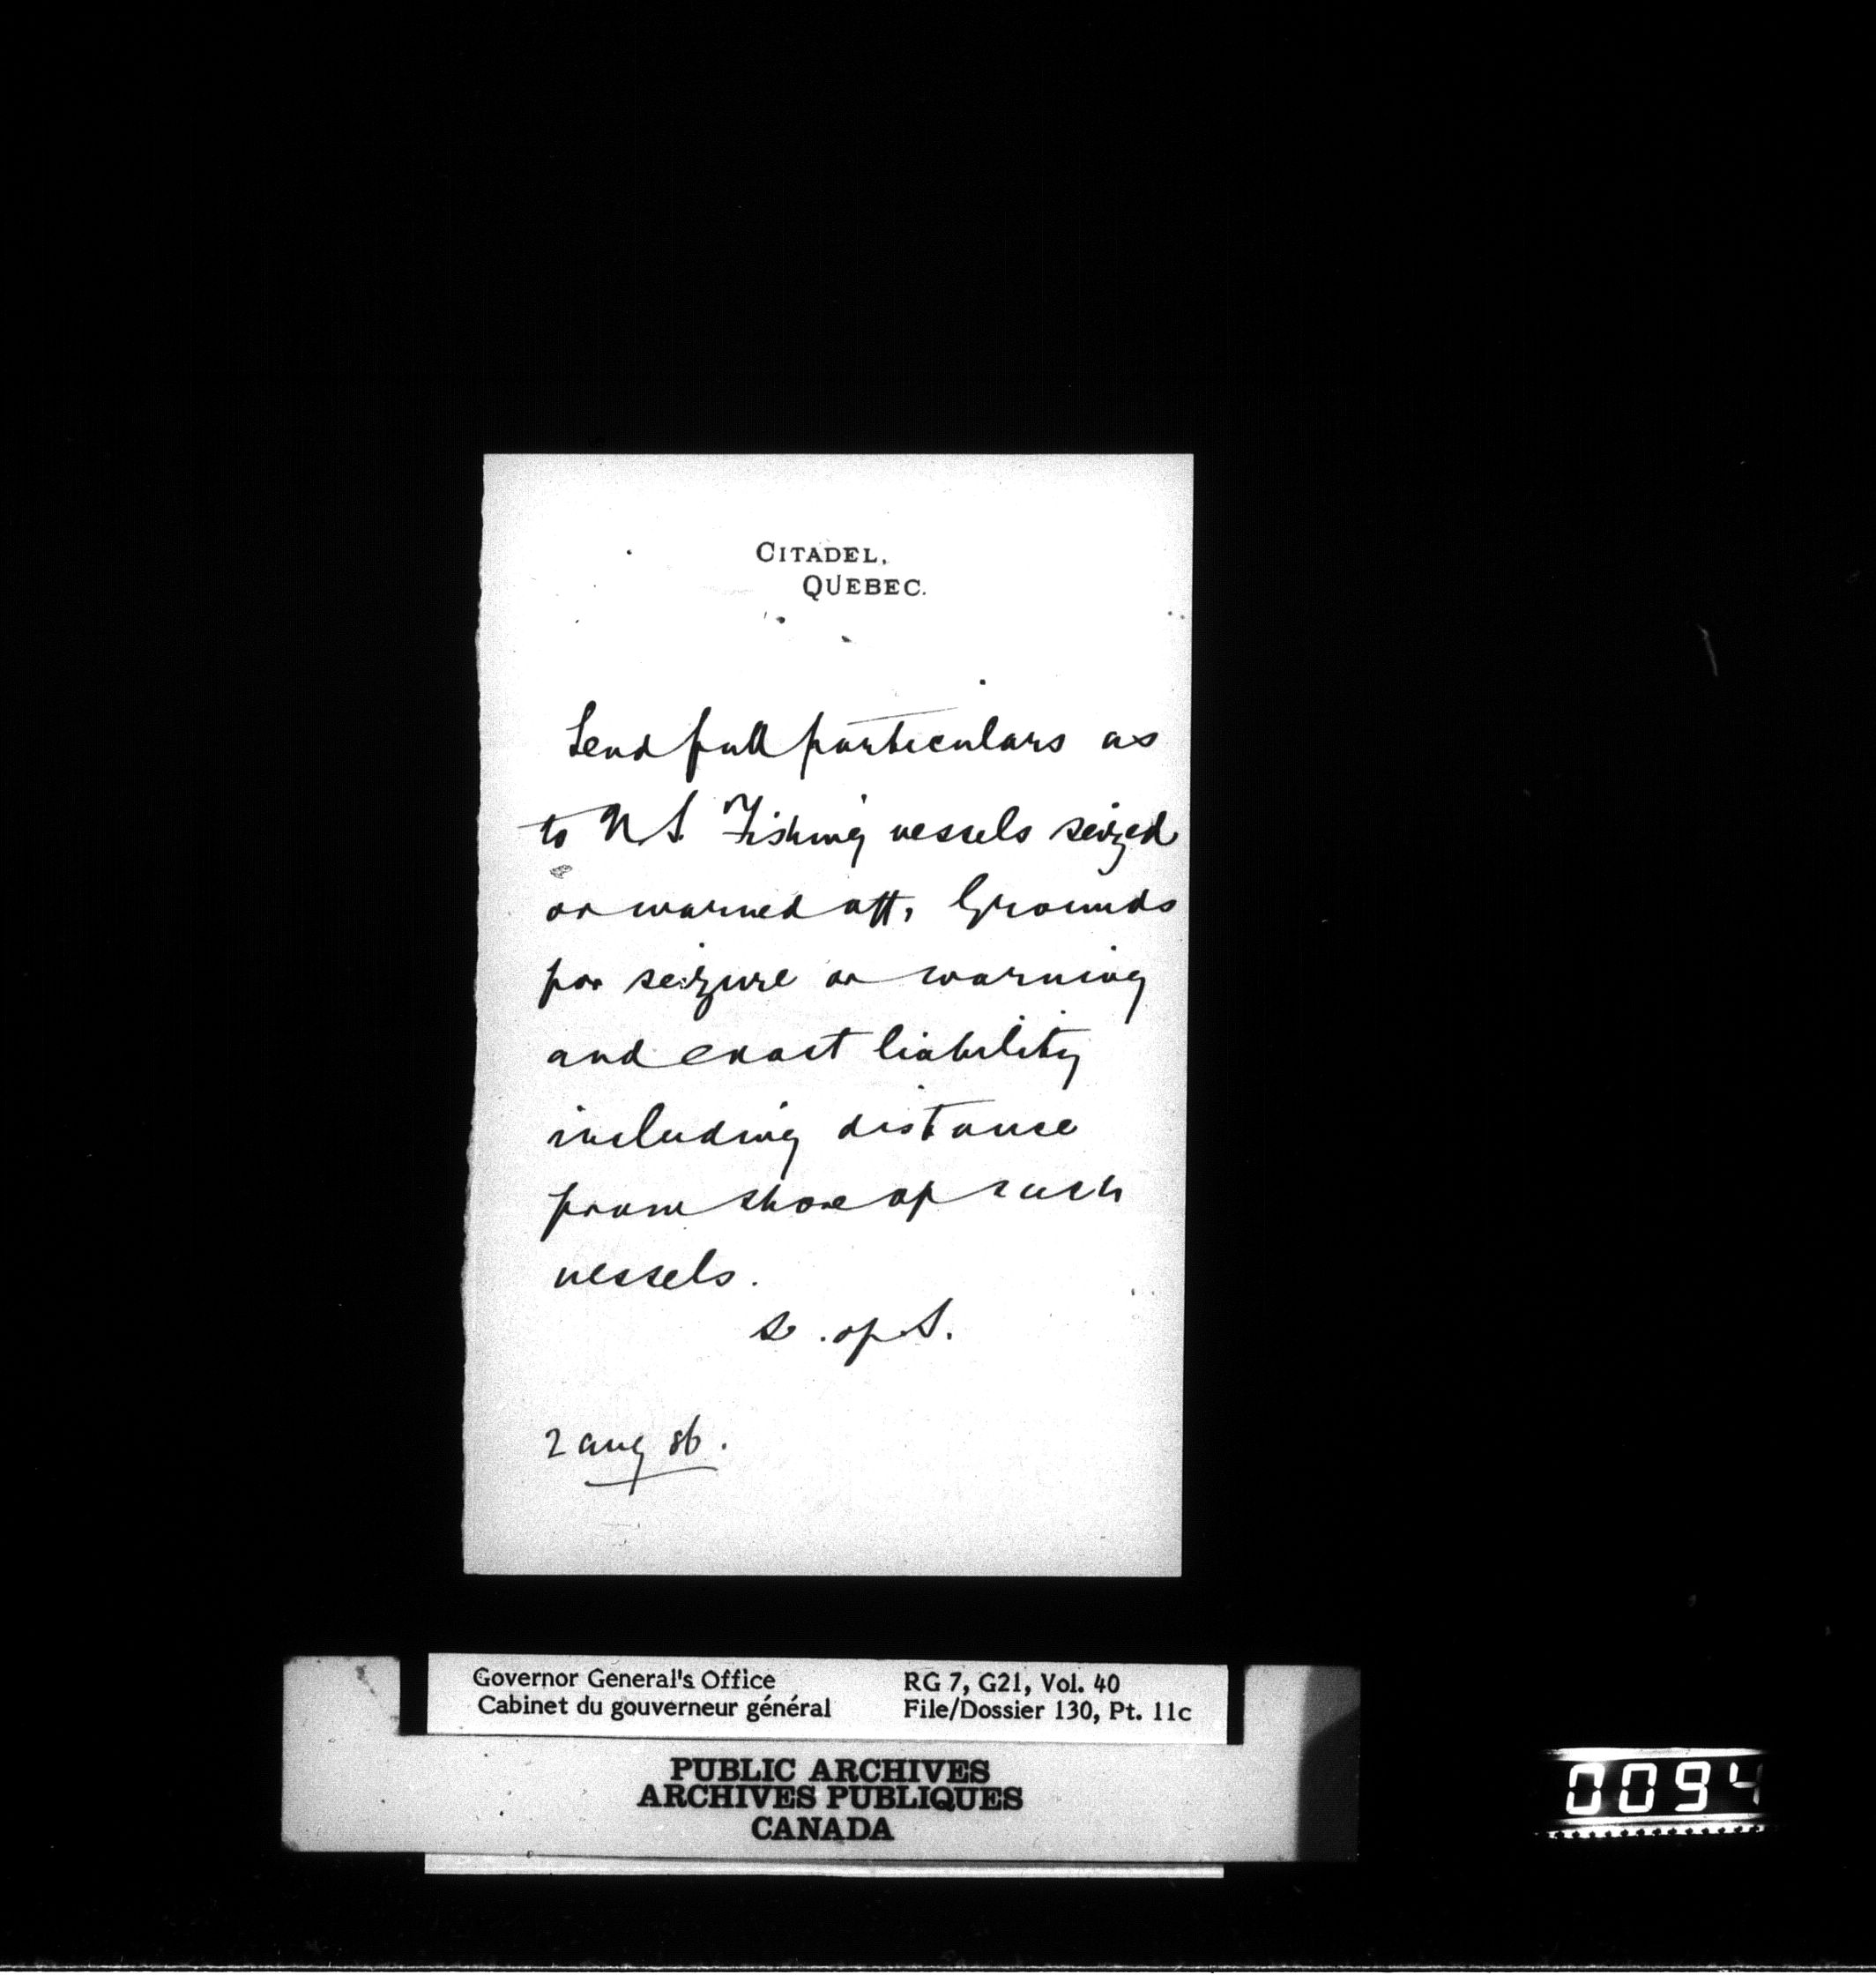 CITADEL,
QUEBEC.
Send full particulars as
to U.S. Fishing vessels seized
or warned off, Grounds
for seizure or warning
and exact liability
including distance
from shore of such
vessels.
S. of S.
2 Aug 86.
Governor General's Office RG 7, G21, Vol. 40
Cabinet du gouverneur général File/Dossier 130, Pt. 11c
PUBLIC ARCHIVES
ARCHIVES PUBLIQUES
CANADA
0094